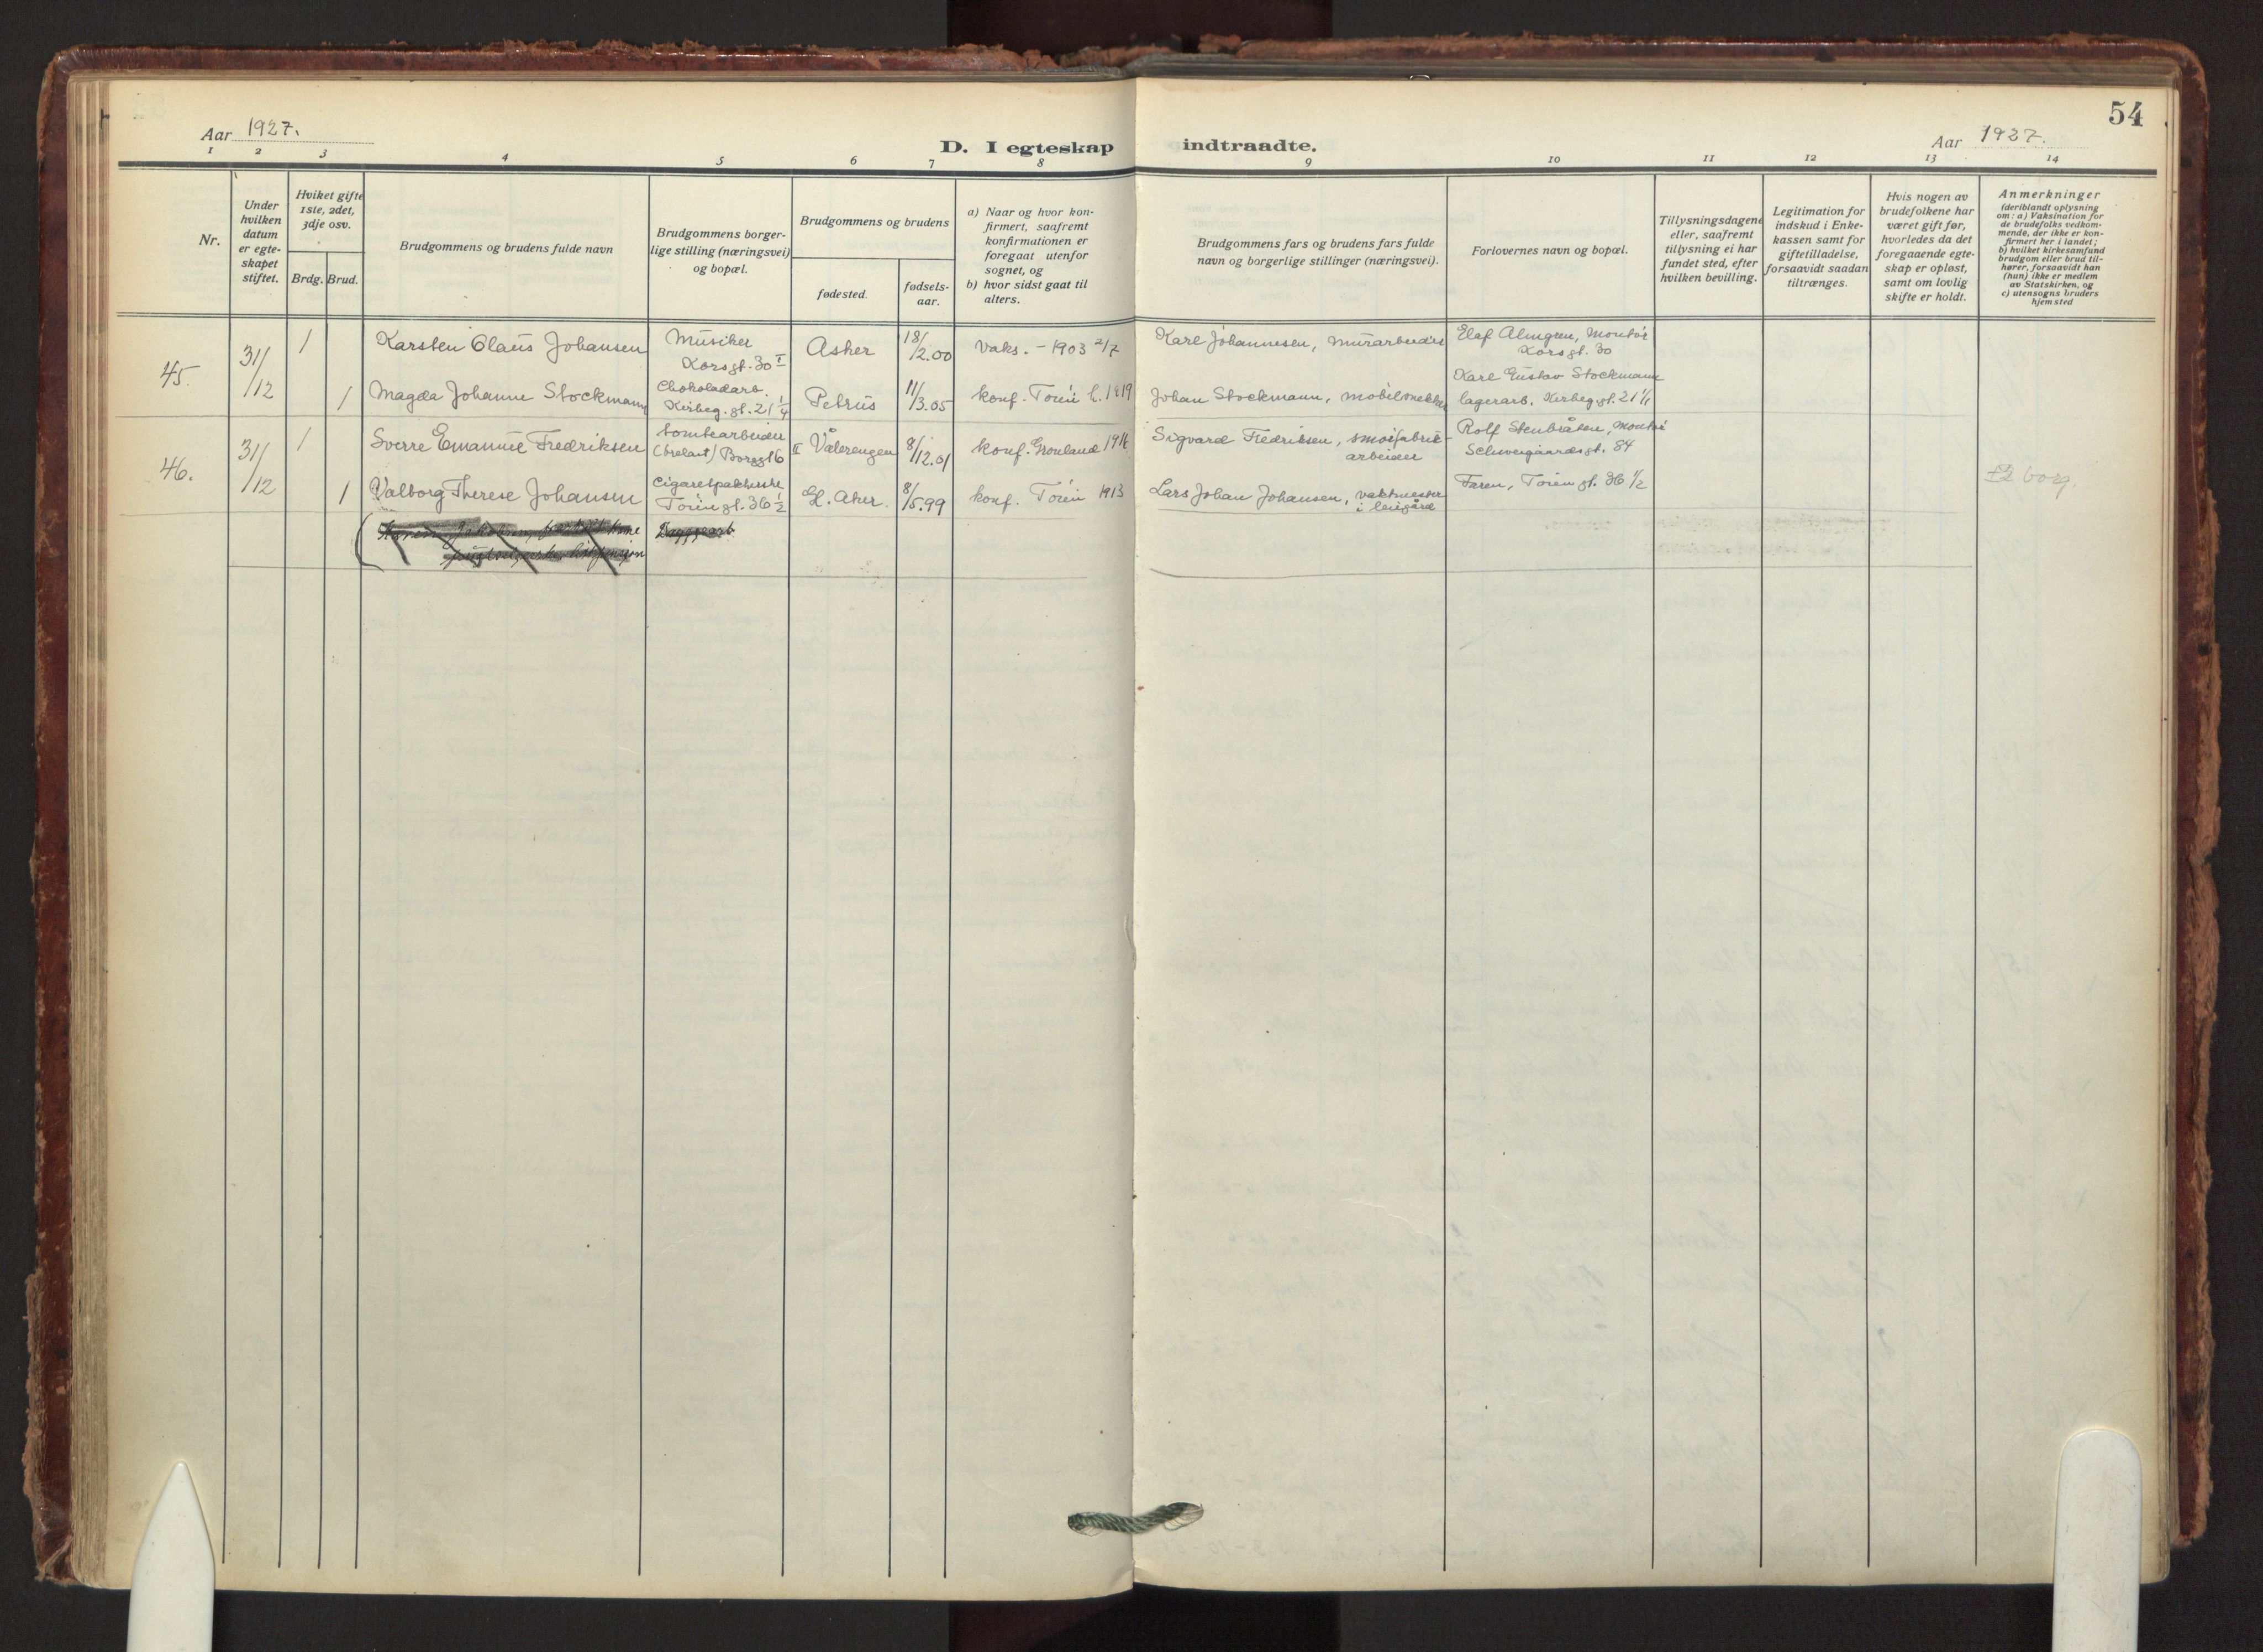 54
Aar 1927.
D. I egteskap indtraadte.
Aar 1927.
1 2 3 4 5 6 7 8 9 10 11 12 13 14
Nr.
Under
hvilken
datum
er egte-
skapet
stiftet.
Hviket gifte
1ste, 2det,
3dje osv.
Brdg. Brud.
Brudgommens og brudens fulde navn
Brudgommens borger-
lige stilling (næringsvei)
og bopæl.
Brudgommens og brudens
fødested.
fødsels-
aar.
a) Naar og hvor kon-
firmert, saafremt
konfirmationen er
foregaat utenfor
sognet, og
b) hvor sidst gaat til
alters.
Brudgommens fars og brudens fars fulde
navn og borgerlige stillinger (næringsvei).
Forlovernes navn og bopæl.
Tillysningsdagene
eller, saafremt
tillysning ei har
fundet sted, efter
hvilken bevilling.
Legitimation for
indskud i Enke-
kassen samt for
giftetilladelse,
forsaavidt saadan
tiltrænges.
Hvis nogen av
brudefolkene har
været gift før,
hvorledes da det
foregaaende egte-
skap er opløst,
samt om lovlig
skifte er holdt.
Anmerkninger
(deriblandt oplysning
om: a) Vaksination for
de brudefolks vedkom-
mende, der ikke er kon-
firmert her i landet;
b) hvilket kirkesamfund
brudgom eller brud til-
hører, forsaavidt han
(hun) ikke er medlem
av Statskirken, og
c) utensogns bruders
hjemsted
45.
31/12
1
Karsten Olaus Johansen
Musiker
Korsgt. 30 I
Asker
18/2.00
Vaks. - 1903 2/7
Karl Johannesen, murarbeider
Elof Almgren, Montør
Korsgt. 30
1
Magda Johanne Stockmann
Chokoladarb.
Kirkeg. gt. 21 1/4
Petrus
11/3.05
konf. Tøien k. 1919
Johan Stockmann, møbelsnekker
Karl Gustav Stockmann
lagerarb. Kirkeg. gt. 21
46.
31/12
1
Sverre Emanuel Fredriksen
tomtearbeider
Borggt 6 II
Vålerengen
8/12.01
konf. Grønland 1916
Sigvard Fredriksen,
arbeider
Rolf Stenbråten, Montør
Schweigaardsgt. 84
1
Valborg Therese Johansen
Cigaretpakkerske
Tøiengt. 36 1/2
G. Aker.
8/5.99
konf. Tøien 1913
Lars Johan Johansen, vaktmester
i leiegård
Faren, Tøiengt. 36 1/2
borg.